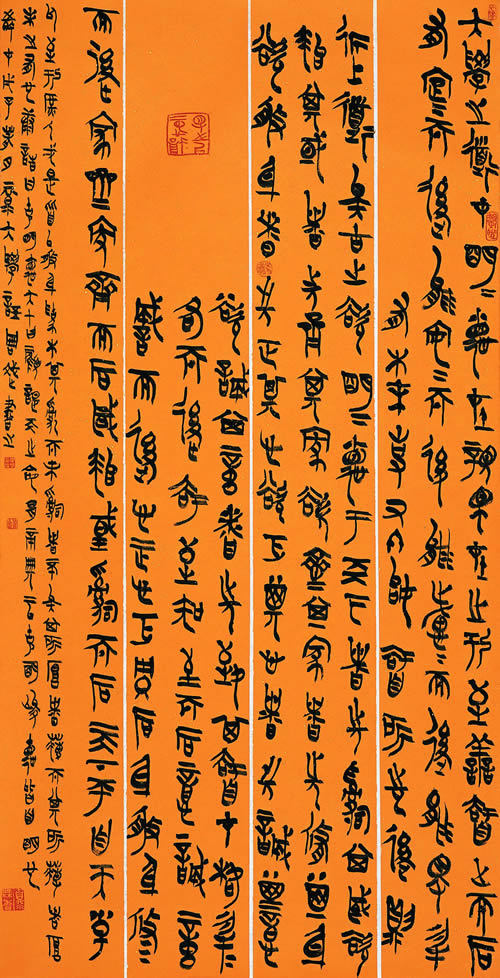 大學之道才明=德在親民在止於至善智止而后
有定=而後能安=而後能慮=而後能得
物有本末事又終始智所先後則
近道矣古之欲明=德于天下者先治其國欲
治其國者先齊其家欲齊其家者先修其身
欲修身者先正其心欲正其心者先誠其意
欲誠其意者先致其智才格物
勿格而后智至知至而后意誠意
誠而後心正心正而后身修身修
而後家齊家齊而后國治國治而后天下平自天子
以至於庶人壹是皆以修身為本其本亂而末治者否矣其所厚者薄而其所薄者厚
未之有也康誥曰克明德大甲曰顧諟天之明命帝典曰克明峻德皆自明也
戊子 月錄大學語 書之